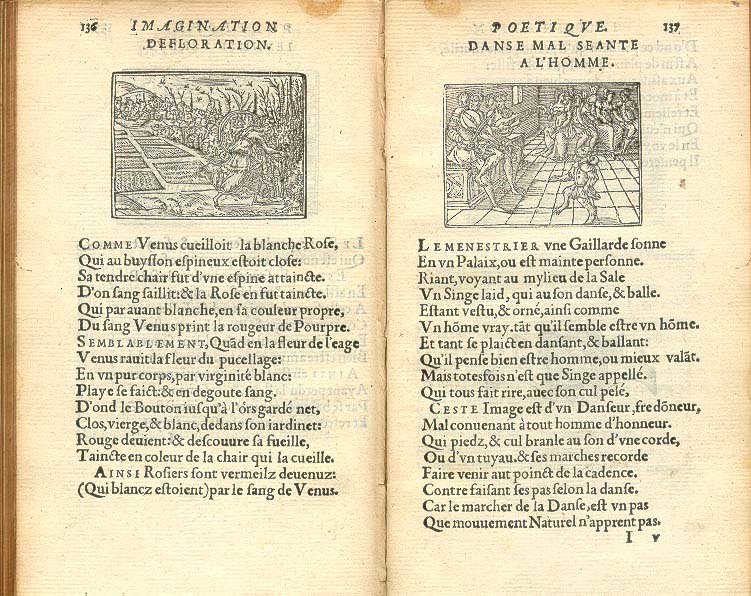 136 IMAGINATION
DEFLORATION.
COMME Venus cueilloit la blanche Rose,
Qui au buysson espineux estoit close:
Sa tendre chair fut d'vne espine attaincte.
D'on sang saillit: & la Rose en fut taincte.
Qui par auant blanche, en sa couleur propre,
Du sang Venus print la rougeur de Pourpre.
SEMBLABLEMENT, Quãd en la fleur de l'eage
Venus rauit la fleur du pucellage:
En vn pur corps, par virginité blanc:
Playe se faict: & en degoute sang.
D'ond le Bouton iusqu'à l'órs gardé net,
Clos, vierge, & blanc, dedans son iardinet:
Rouge deuient: & descouure sa fueille,
Taincte en coleur de la chair qui la cueille.
AINSI Rosiers sont vermeilz deuenuz:
(Qui blancz estoient) par le sang de Venus.
POETIQVE. 137
DANSE MAL SEANTE
A L'HOMME.
LE MENESTRIER vne Gaillarde sonne
En vn Palaix, ou est mainte personne.
Riant, voyant au mylieu de la Sale
Vn Singe laid, qui au son danse, & balle.
Estant vestu, & orné, ainsi comme
Vn hõme vray. tãt qu'il semble estre vn hõme.
Et tant se plaict en dansant, & ballant:
Qu'il pense bien estre homme, ou mieux valãt.
Mais totesfois n'est que Singe appellé.
Qui tous fait rire, auec son cul pelé,
CESTE Image est d'vn Danseur, fredõneur,
Mal conuenant à tout homme d'honneur.
Qui piedz, & cul branle au son d'vne corde,
Ou d'vn tuyau. & ses marches recorde
Faire venir aut poinct de la cadence.
Contre faisant ses pas selon la danse.
Car le marcher de la Danse, est vn pas
Que mouuement Naturel n'apprent pas.
I v